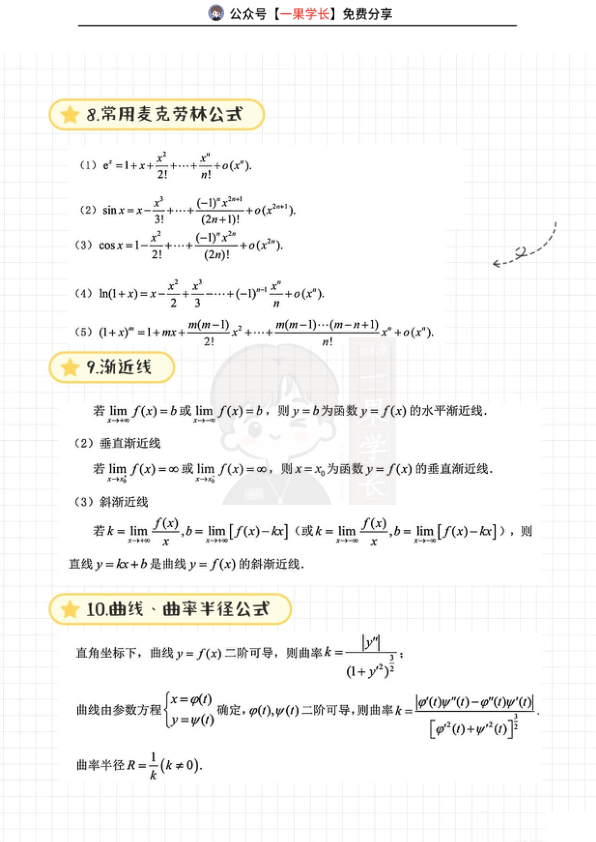 公众号【一果学长】免费分享
8.常用麦克劳林公式
(1) e^x = 1 + x + x^2/2! + ··· + x^n/n! + o(x^n).
(2) sin x = x − x^3/3! + ··· + (−1)^n x^{2n+1}/(2n+1)! + o(x^{2n+1}).
(3) cos x = 1 − x^2/2! + ··· + (−1)^n x^{2n}/(2n)! + o(x^{2n}).
(4) ln(1+x) = x − x^2/2 + x^3/3 − ··· + (−1)^{n−1} x^n/n + o(x^n).
(5) (1+x)^m = 1 + mx + m(m−1)/2! x^2 + ··· + m(m−1)···(m−n+1)/n! x^n + o(x^n).
9.渐近线
若 lim_{x→+∞} f(x) = b 或 lim_{x→−∞} f(x) = b，则 y = b 为函数 y = f(x) 的水平渐近线.
(2) 垂直渐近线
若 lim_{x→x_0^+} f(x) = ∞ 或 lim_{x→x_0^-} f(x) = ∞，则 x = x_0 为函数 y = f(x) 的垂直渐近线.
(3) 斜渐近线
若 k = lim_{x→+∞} f(x)/x, b = lim_{x→+∞} [f(x) − kx]（或 k = lim_{x→−∞} f(x)/x, b = lim_{x→−∞} [f(x) − kx]），则
直线 y = kx + b 是曲线 y = f(x) 的斜渐近线.
10.曲线、曲率半径公式
直角坐标下，曲线 y = f(x) 二阶可导，则曲率 k = |y″|/(1+y′^2)^{3/2}；
曲线由参数方程 {x = φ(t) y = ψ(t) 确定，φ(t),ψ(t) 二阶可导，则曲率 k = |φ′(t)ψ″(t) − φ″(t)ψ′(t)|/[φ′^2(t) + ψ′^2(t)]^{3/2}.
曲率半径 R = 1/k (k ≠ 0).
一果学长